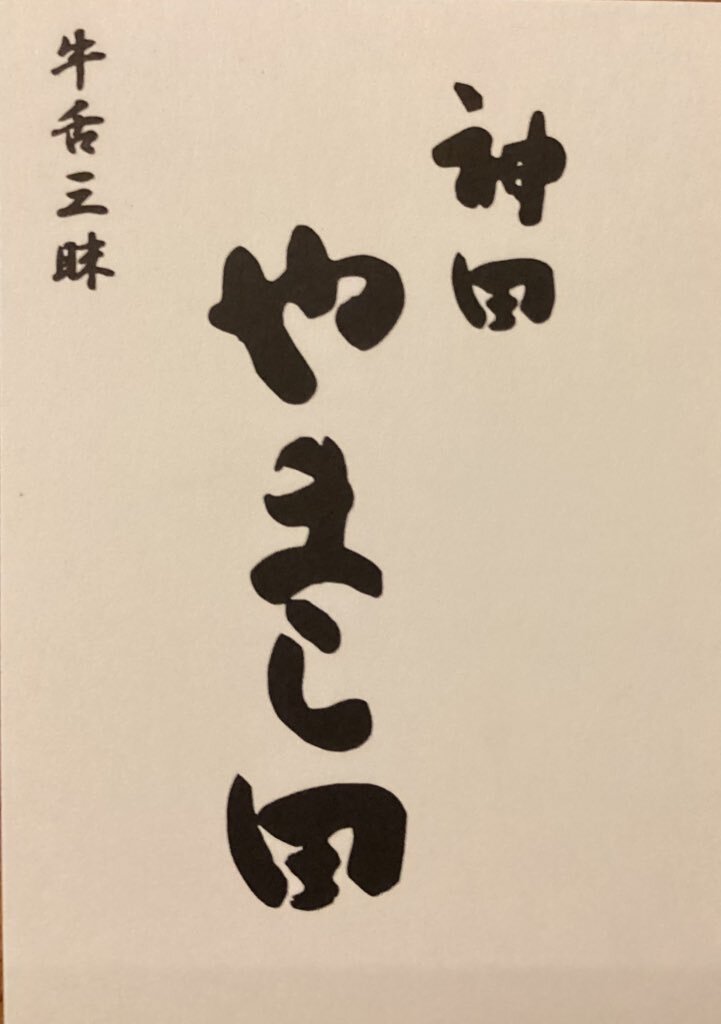 神田
やまし田
牛舌三昧